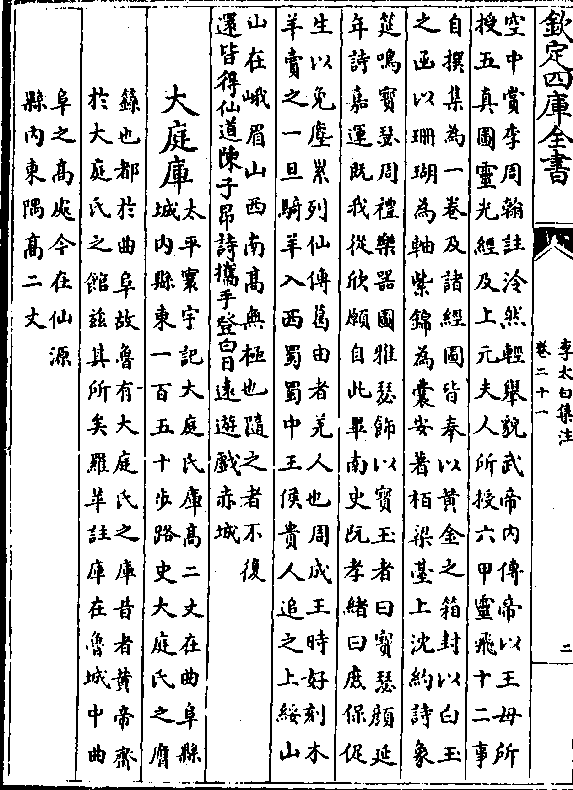 欽定四庫全書
李太白集注
卷二十一
二
空中賞李周翰註泠然輕舉貌武帝內傳帝以王母所
授五真圖靈光經及上元夫人所授六甲靈飛十二事
自撰集為一卷及諸經圖皆奉以黃金之箱封以白玉
之函以珊瑚為軸紫錦為囊安著栢梁臺上沈約詩象
筵鳴寳瑟周禮樂器圖雅瑟飾以寳玉者曰寳瑟顔延
年詩嘉運既我從欣願自此畢南史阮孝緒曰庶保促
生以免塵累列仙傳葛由者羌人也周成王時好刻木
羊賣之一旦騎羊入西蜀蜀中王侯貴人追之上綏山
山在峨眉山西南髙無極也隨之者不復
還皆得仙道陳子昻詩攜手登白日逺遊戲赤城
大庭庫
太平寰宇記大庭氏庫髙二丈在曲阜縣
城内縣東一百五十步路史大庭氏之膺
籙也都於曲阜故魯有大庭氏之庫昔者黄帝齋
於大庭氏之館兹其所矣羅苹註庫在魯城中曲
阜之髙處今在仙源
縣内東隅髙二丈